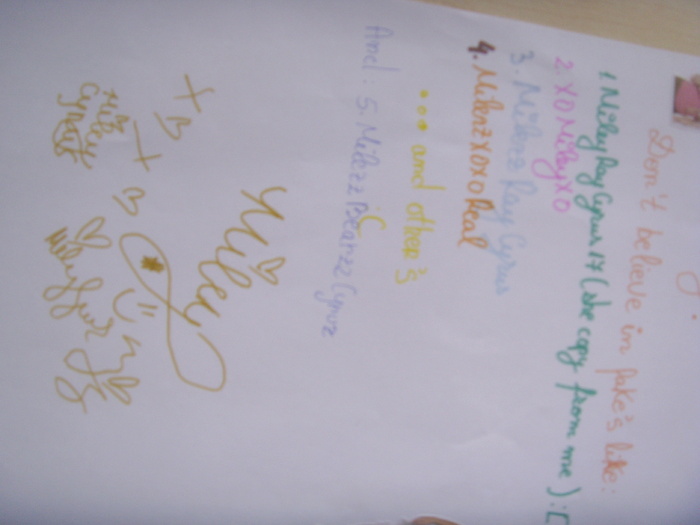 Don't believe in fake's like:
1 MileyRayCyrus17 (she copy from me) :[
2 XOMileyXO
3. Milenz Ray Cyrus
4. MilenzXoxoReal
... and other's
And: 5. Milezz Bearzz Cyruz
:C
Miley
Miley
Cyrus